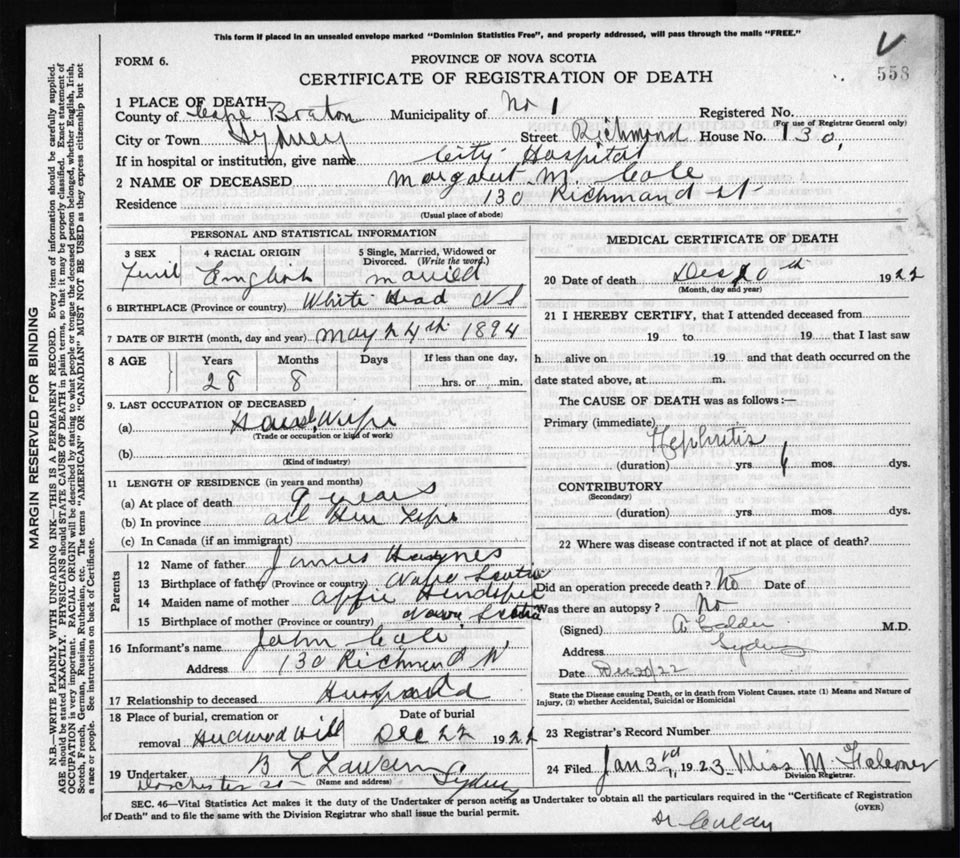 This form if placed in an unsealed envelope marked "Dominion Statistics Free", and properly addressed, will pass through the mails "FREE."
FORM 6.
PROVINCE OF NOVA SCOTIA
558
CERTIFICATE OF REGISTRATION OF DEATH
1 PLACE OF DEATH
County of Cape Breton Municipality of No 1 Registered No.
(For use of Registrar General only)
City or Town Sydney Street Richmond House No. 130,
If in hospital or institution, give name City Hospital
2 NAME OF DECEASED Margaret M. Cole
Residence 130 Richmond St
(Usual place of abode)
PERSONAL AND STATISTICAL INFORMATION
3 SEX 4 RACIAL ORIGIN 5 Single, Married, Widowed or Divorced. (Write the word.)
English
6 BIRTHPLACE (Province or country) White Head NS
7 DATE OF BIRTH (month, day and year) May 24th 1894
8 AGE Years Months Days If less than one day,
28 8 hrs. or min.
9. LAST OCCUPATION OF DECEASED
(a) House Wife
(Trade or occupation or kind of work)
(b)
(Kind of industry)
11 LENGTH OF RESIDENCE (in years and months)
(a) At place of death 9 years
(b) In province all Her Life
(c) In Canada (if an immigrant)
Parents
12 Name of father James
13 Birthplace of father (Province or country) Nova Scotia
14 Maiden name of mother Effie
15 Birthplace of mother (Province or country) Nova Scotia
16 Informant's name John Cole
Address 130 Richmond
17 Relationship to deceased Husband
18 Place of burial, cremation or removal Hardwood Hill Date of burial Dec 22 1922
19 Undertaker Sydney
(Name and address)
Dorchester St
MEDICAL CERTIFICATE OF DEATH
20 Date of death Dec 20th 1922
(Month, day and year)
21 I HEREBY CERTIFY, that I attended deceased from
19 to 19 that I last saw
h alive on 19 and that death occurred on the
date stated above, at m.
The CAUSE OF DEATH was as follows:—
Primary (immediate) Nephritis
(duration) yrs. 1 mos. dys.
CONTRIBUTORY
(Secondary)
(duration) yrs. mos. dys.
22 Where was disease contracted if not at place of death?
Did an operation precede death? No Date of
Was there an autopsy? No
(Signed) A Calder M.D.
Address, Sydney
Date Dec 20/22
State the Disease causing Death, or in death from Violent Causes, state (1) Means and Nature of
Injury, (2) whether Accidental, Suicidal or Homicidal
23 Registrar's Record Number
24 Filed Jan 3rd, 1923. Miss M. Falconer
Division Registrar.
SEC. 46—Vital Statistics Act makes it the duty of the Undertaker or person acting as Undertaker to obtain all the particulars required in the "Certificate of Registration
of Death" and to file the same with the Division Registrar who shall issue the burial permit.
(OVER)
MARGIN RESERVED FOR BINDING
N.B.—WRITE PLAINLY WITH UNFADING INK—THIS IS A PERMANENT RECORD. Every item of information should be carefully supplied.
AGE should be stated EXACTLY. PHYSICIANS should STATE CAUSE OF DEATH in plain terms, so that it may be properly classified. Exact statement of
OCCUPATION is very important. RACIAL ORIGIN will be described by stating to what people or tongue the deceased person belonged, whether English, Irish,
Scotch, French, German, Russian, Ruthenian, etc. The terms "AMERICAN" OR "CANADIAN" MUST NOT BE USED as they express citizenship but not
a race or people. See instructions on back of Certificate.